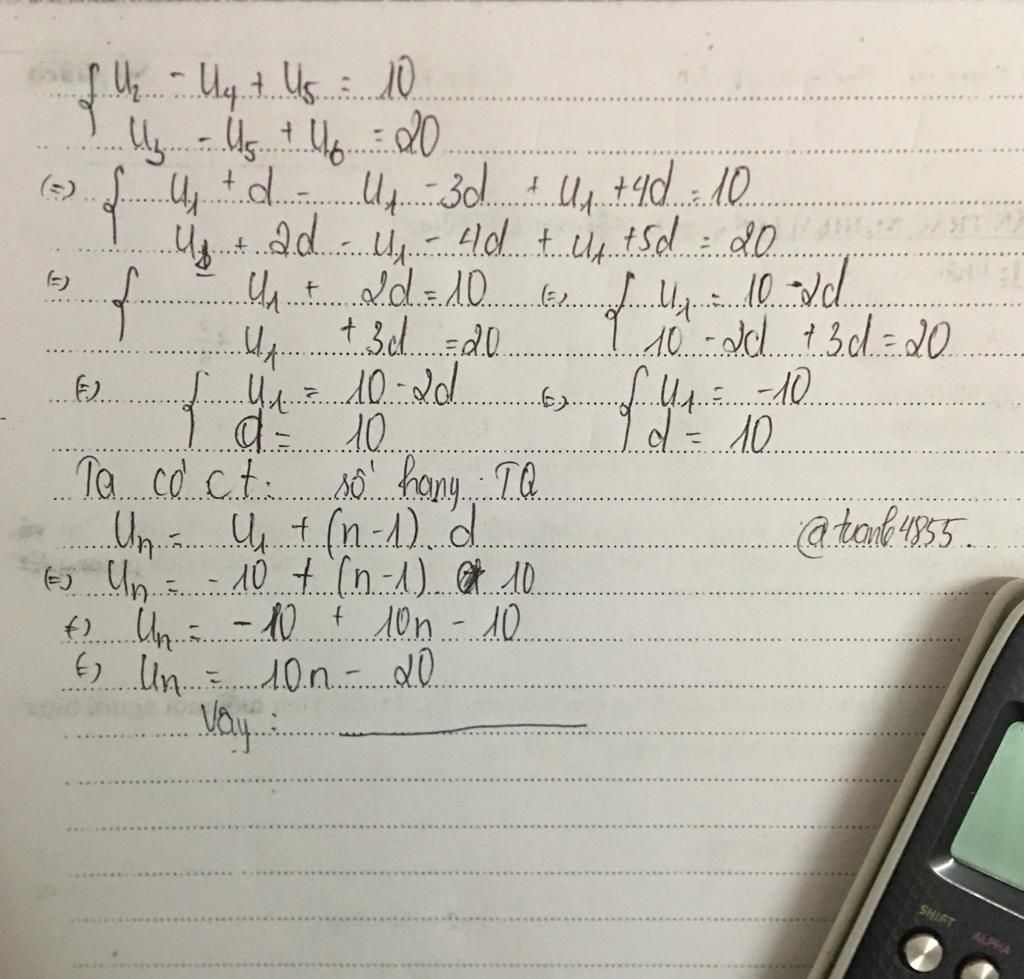 { U₂ - U₄ + U₅ = 10
U₃ - U₅ + U₆ = 20
(=) { U₁ + d - U₁ - 3d + U₁ + 4d = 10
U₁ + 2d - U₁ - 4d + U₁ + 5d = 20
(=) { U₁ + 2d = 10 (=) { U₁ = 10 - 2d
U₁ + 3d = 20 10 - 2d + 3d = 20
(=) { U₁ = 10 - 2d (=) { U₁ = -10
d = 10 d = 10
Ta có ct: số hạng TQ
Uₙ = U₁ + (n-1). d
@tuanb4855.
(=) Uₙ = -10 + (n-1). 10
(=) Uₙ = -10 + 10n - 10
(=) Uₙ = 10n - 20
Vậy :
SHIFT
ALPHA